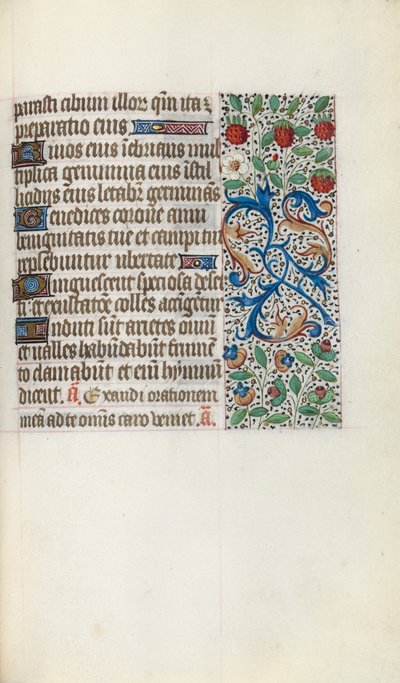 parasti cibum illor qm ita e
preparatio eius
Riuos eius īebrians mul
tiplica genimina eius ī stil
licidijs eius letabr germinās
Benedices corone anni
benignitatis tue et campi tui
replebuntur ubertate
Pinguescent speciosa deser
ti et exultatōe colles accīgētur
Induti sūt arietes oviū
et valles habūdabūt frumē
to clamabūt et eni hymnū
dicent. ā. Exaudi orationem
meā ad te omīs caro veniet. ā.